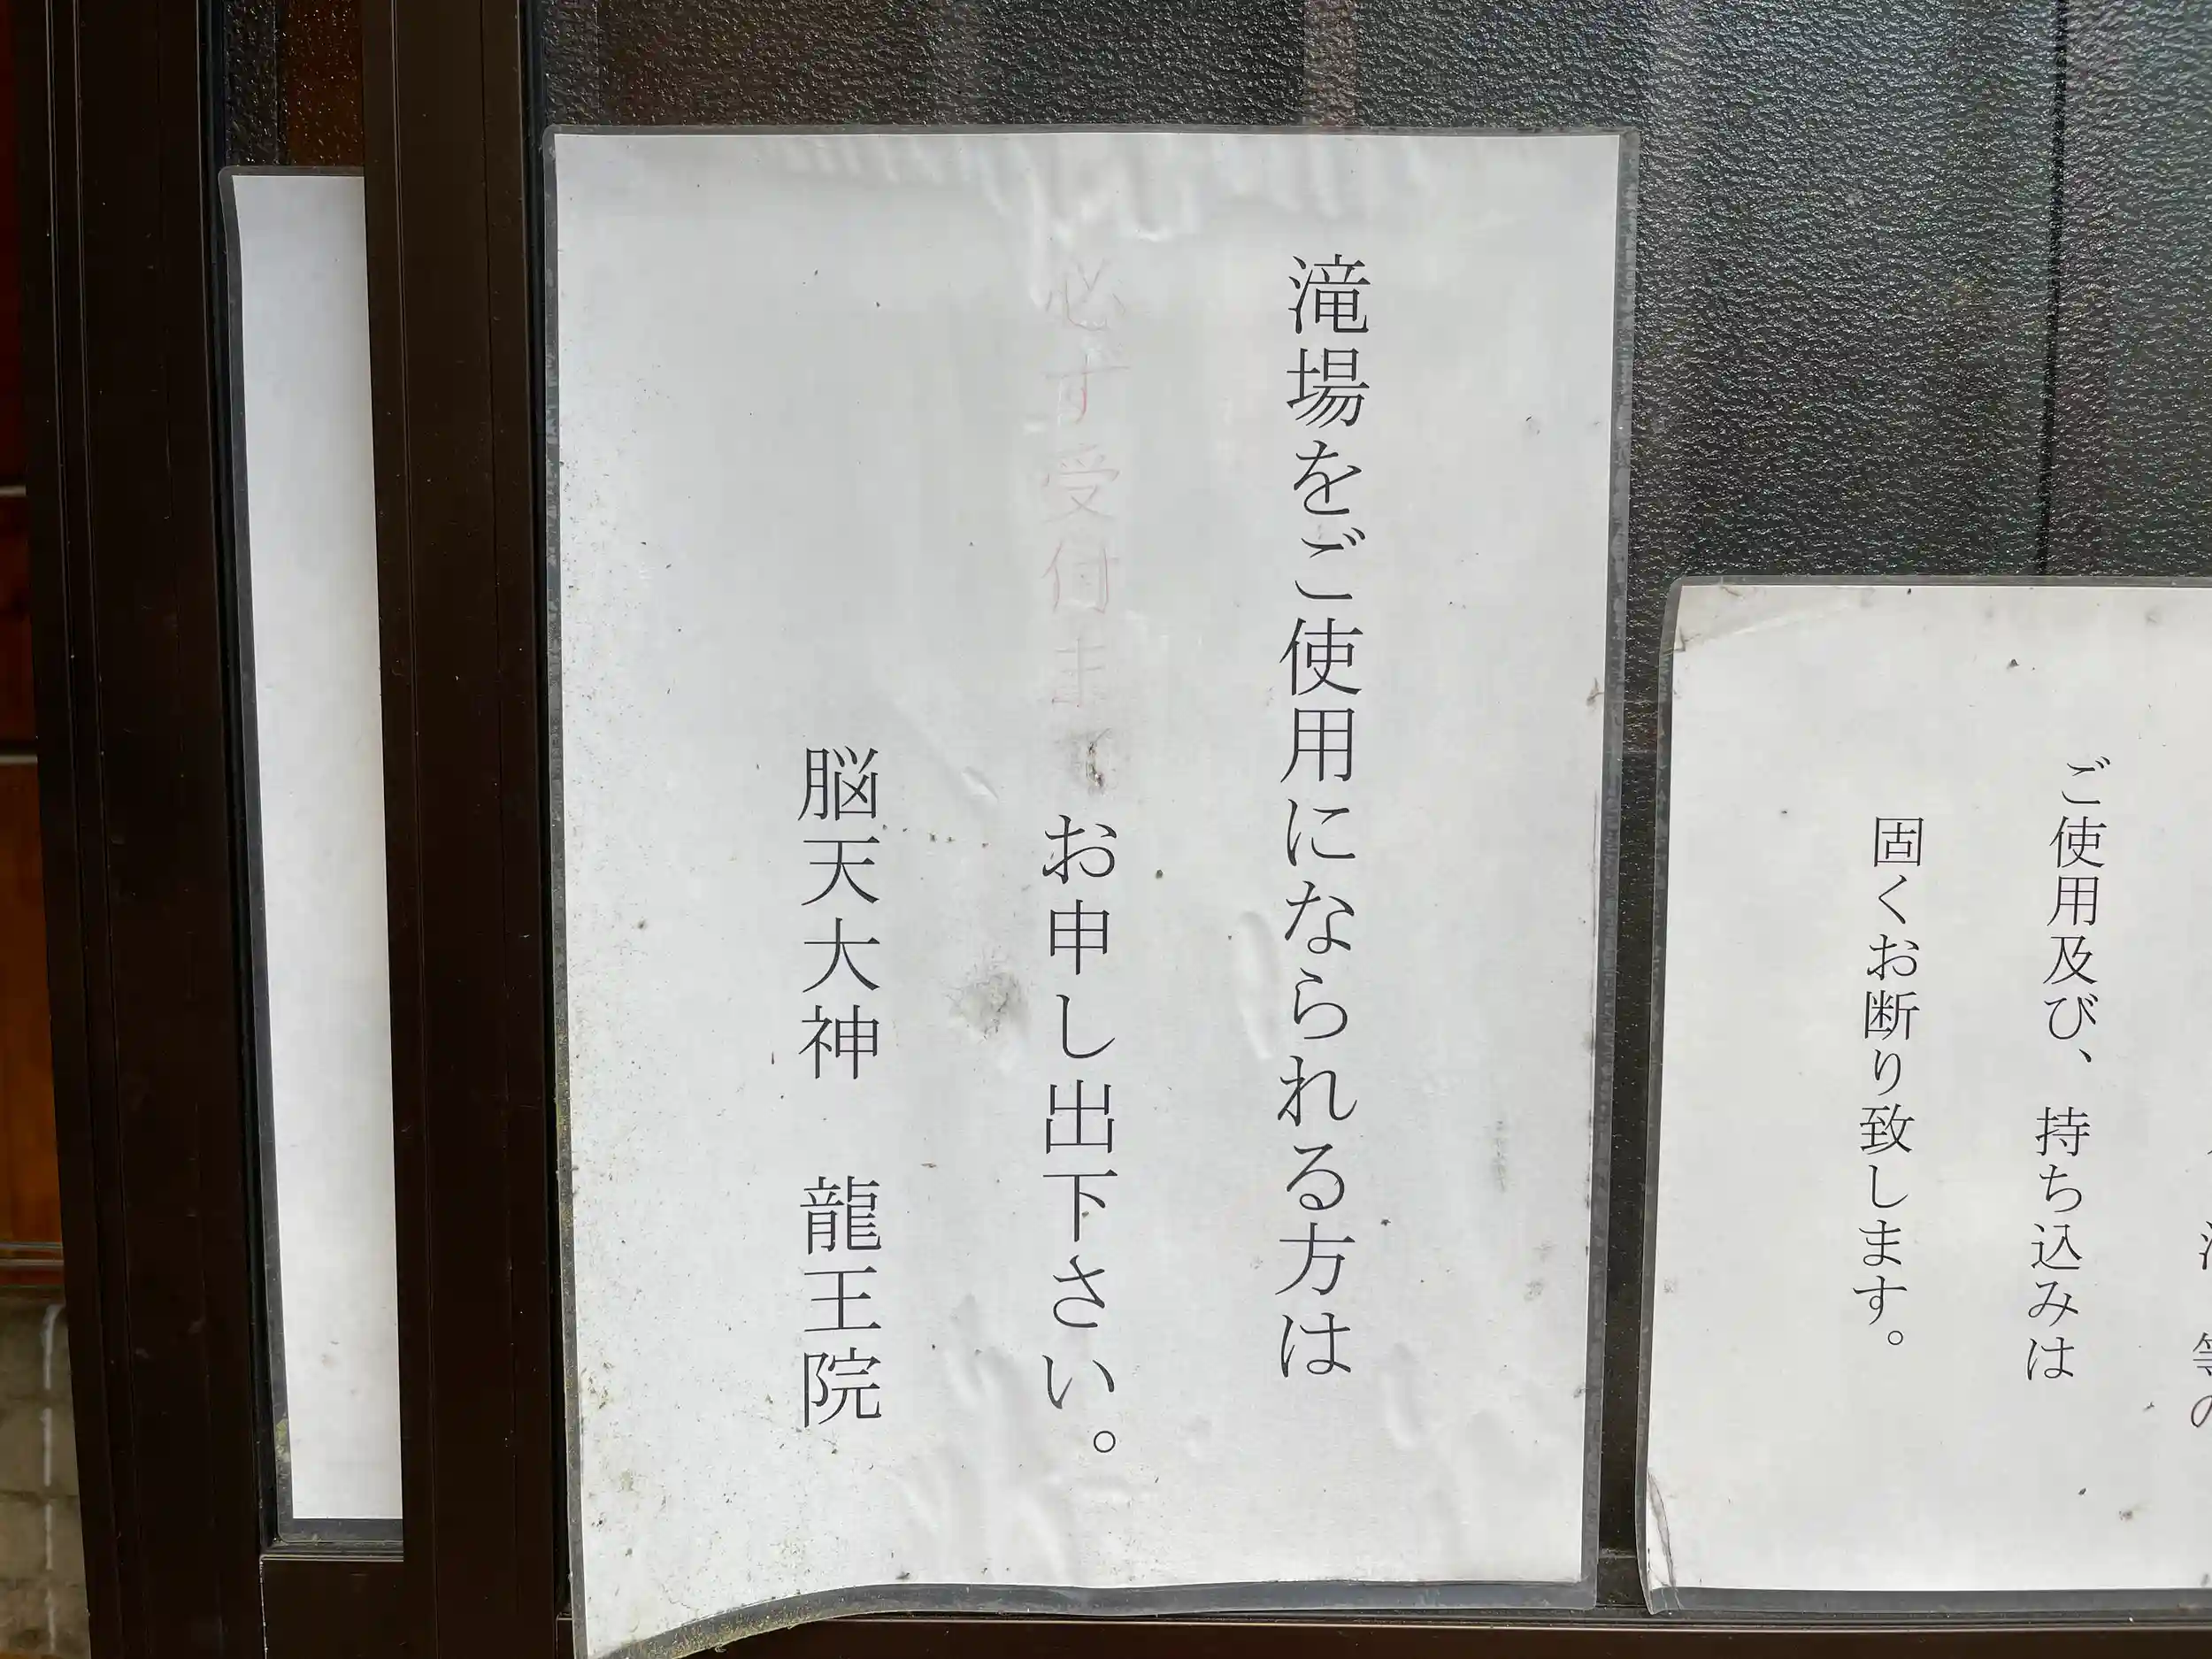 滝場をご使用になられる方は
必ず受付まで お申し出下さい。
脳天大神　龍王院
等の
ご使用及び、持ち込みは
固くお断り致します。